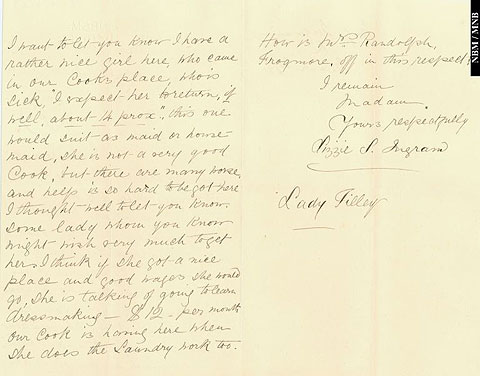 I want to let you know I have a
rather nice girl here, who came
in our Cook's place, who is
sick, "I expect her to return, if
well, about 14 prox". this one
would suit as maid or house-
maid, she is not a very good
Cook, but there are many worse,
and help is so hard to be got here
I thought well to let you know.
Some lady whom you know
might wish very much to get
her. I think if she got a nice
place and good wages she would
go, she is talking of going to learn
dressmaking — $12 - per month
our Cook is having here when
she does the Laundry work too.
How is Mrs. Randolph,
Frogmore, off in this respect?
I remain
Madam,
Yours respectfully
Lizzie S. Ingram
Lady Tilley
NBM / MNB